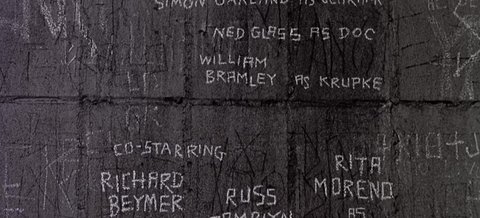 SIMON OAKLAND AS SCHRANK
NED GLASS AS DOC
WILLIAM
BRAMLEY AS KRUPKE
CO-STARRING
RICHARD
BEYMER
RUSS
TAMBLYN
RITA
MORENO
AS